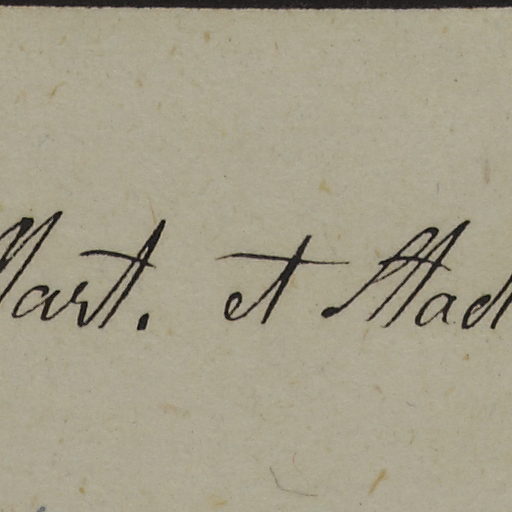 Mart. et Stad